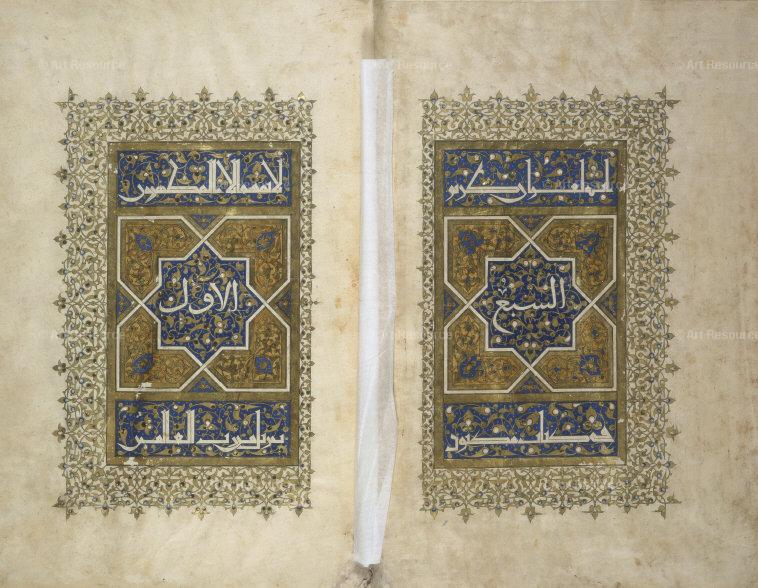 © Art Resource
© Art Resource
© Art Resource
انه لقران كريم
السبع
في كتاب مكنون
لا يمسه الا المطهرون
الأول
تنزيل من رب العالمين